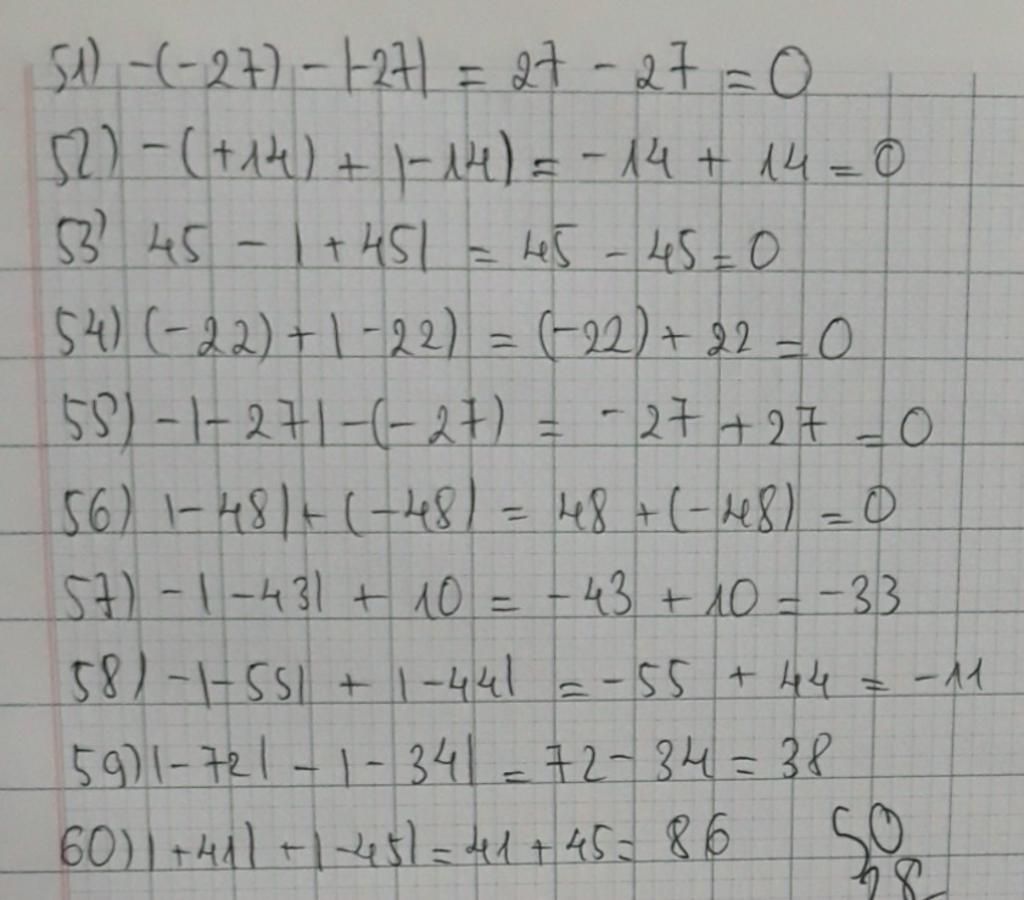 51) -(-27) - |-27| = 27 - 27 = 0
52) -(+14) + |-14) = -14 + 14 = 0
53) 45 - |+45| = 45 - 45 = 0
54) (-22) + |-22) = (-22) + 22 = 0
55) -|-27| -(-27) = -27 + 27 = 0
56) |-48| + (-48) = 48 + (-48) = 0
57) -|-43| + 10 = -43 + 10 = -33
58) -|-55| + |-44| = -55 + 44 = -11
59) |-72| - |-34| = 72 - 34 = 38
60) |+41| + |-45| = 41 + 45 = 86
50